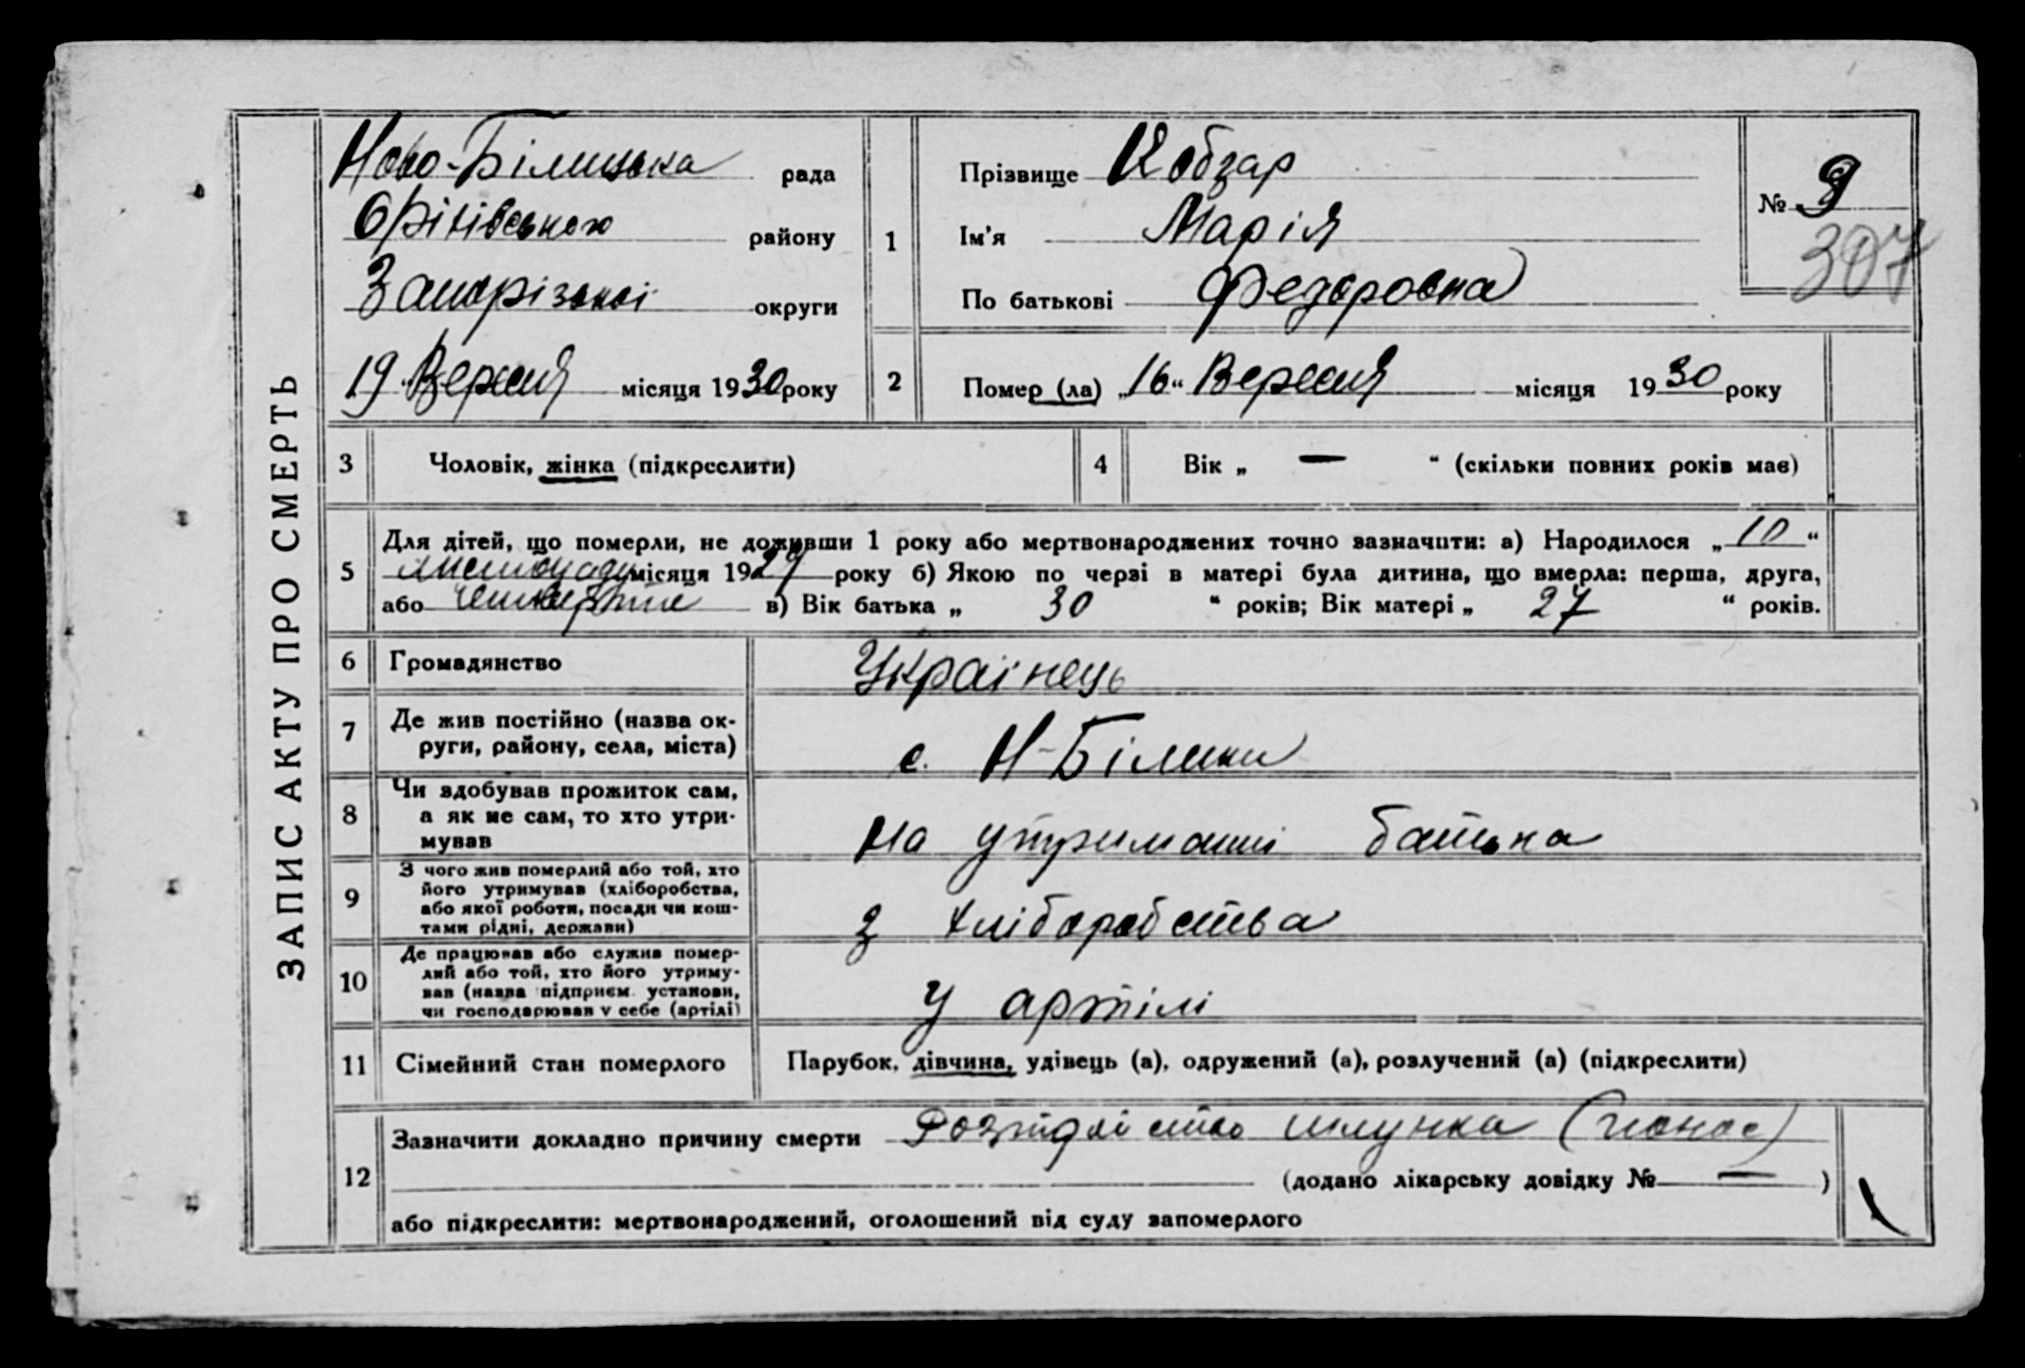 ЗАПИС АКТУ ПРО СМЕРТЬ
Ново-Білицька рада
Оріхівського району
Запорізької округи
19 Вересня місяця 1930 року
1
Прізвище Кобзар
Ім'я Марія
По батькові Федоровна
№ 9
307
2
Помер (ла) „16“ Вересня місяця 1930 року
3 Чоловік, жінка (підкреслити)
4 Вік „ — “ (скільки повних років мав)
5 Для дітей, що померли, не доживши 1 року або мертвонароджених точно зазначити: а) Народилося „10“
листопаду місяця 1929 року б) Якою по черзі в матері була дитина, що вмерла: перша, друга,
або четверте в) Вік батька „ 30 “ років; Вік матері „ 27 “ років.
6 Громадянство Українець
7 Де жив постійно (назва ок-
руги, району, села, міста) с. Н-Білики
8 Чи здобував прожиток сам,
а як не сам, то хто утри-
мував на утриманні батька
9 З чого жив померлий або той, хто
його утримував (хліборобства,
або якої роботи, посади чи кош-
тами рідні, держави) з хліборобства
10 Де працював або служив помер-
лий або той, хто його утриму-
вав (назва підприєм. установи,
чи господарював у себе (артілі) у артілі
11 Сімейний стан померлого Парубок, дівчина, удівець (а), одружений (а), розлучений (а) (підкреслити)
12 Зазначити докладно причину смерти шлунка (понос)
(додано лікарську довідку № — )
або підкреслити: мертвонароджений, оголошений від суду запомерлого